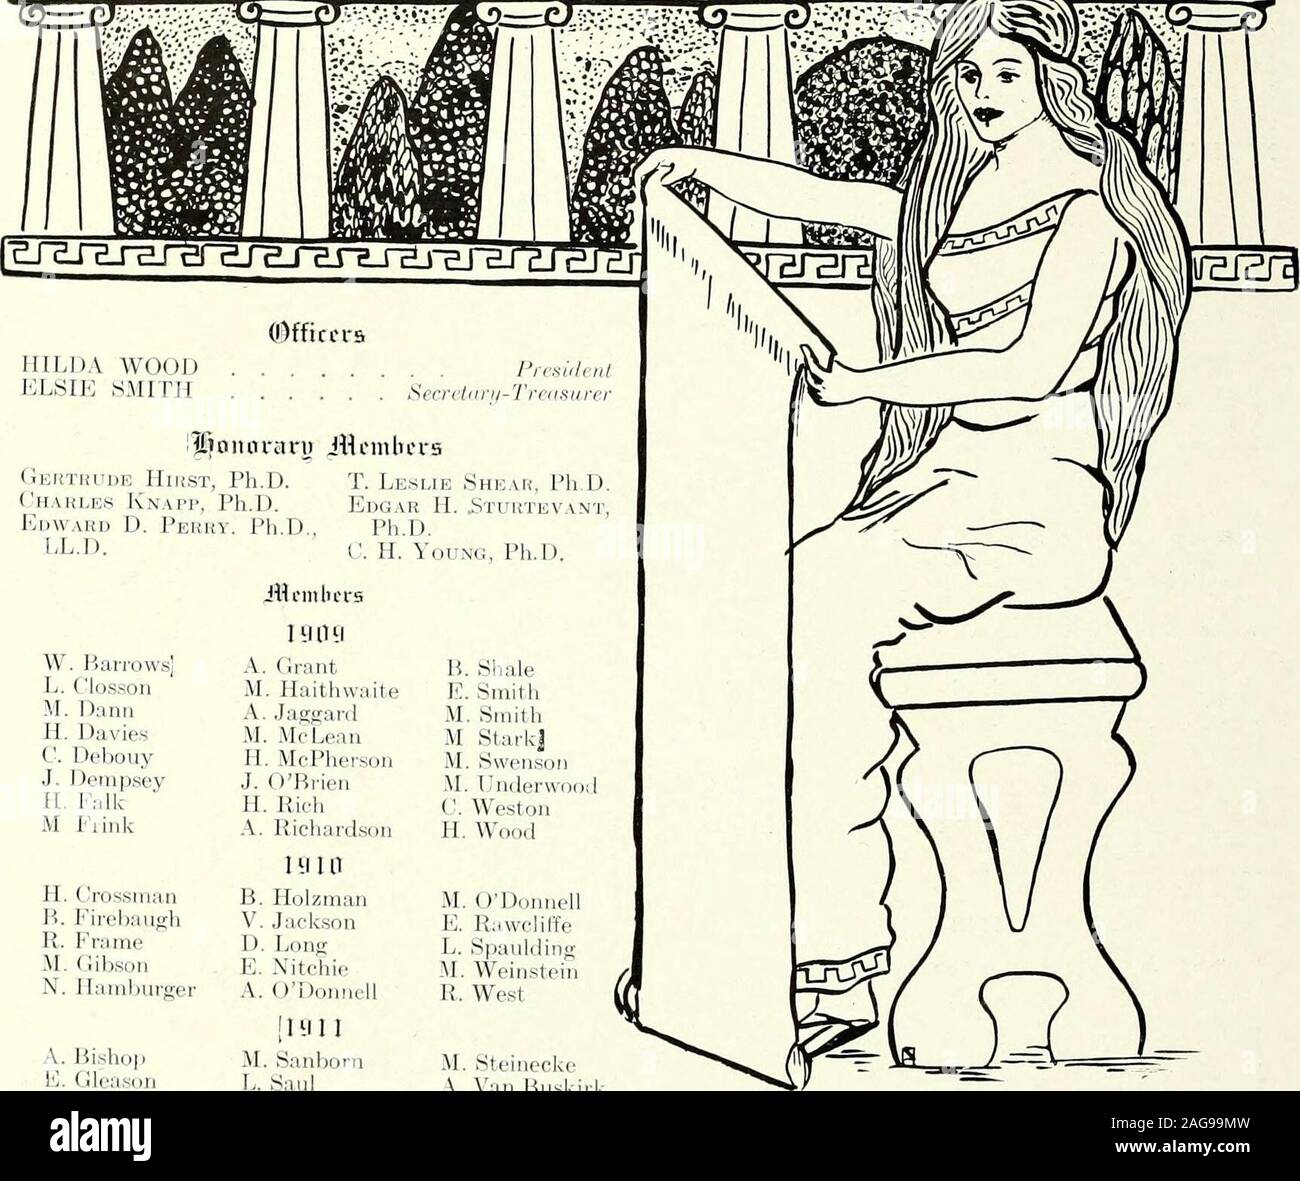 Officers
HILDA WOOD . . . . . . . . . President
ELSIE SMITH . . . . . . Secretary-Treasurer
Honorary Members
Gertrude Hirst, Ph.D. T. Leslie Shear, Ph.D.
Charles Knapp, Ph.D. Edgar H. Sturtevant,
Edward D. Perry. Ph.D., Ph.D.
LL.D. C. H. Young, Ph.D.
Members
1909
W. Barrows A. Grant B. Shale
L. Closson M. Haithwaite E. Smith
M. Dann A. Jaggard M. Smith
H. Davies M. McLean M Stark
C. Debouy H. McPherson M. Swenson
J. Dempsey J. O'Brien M. Underwood
H. Falk H. Rich C. Weston
M Frink A. Richardson H. Wood
1910
H. Crossman B. Holzman M. O'Donnell
B. Firebaugh V. Jackson E. Rawcliffe
R. Frame D. Long L. Spaulding
M. Gibson E. Nitchie M. Weinstein
N. Hamburger A. O'Donnell R. West
1911
A. Bishop M. Sanborn M. Steinecke
E. Gleason L. Saul A. Van Buskirk
alamy
Image ID: 2AG99MW
www.alamy.com